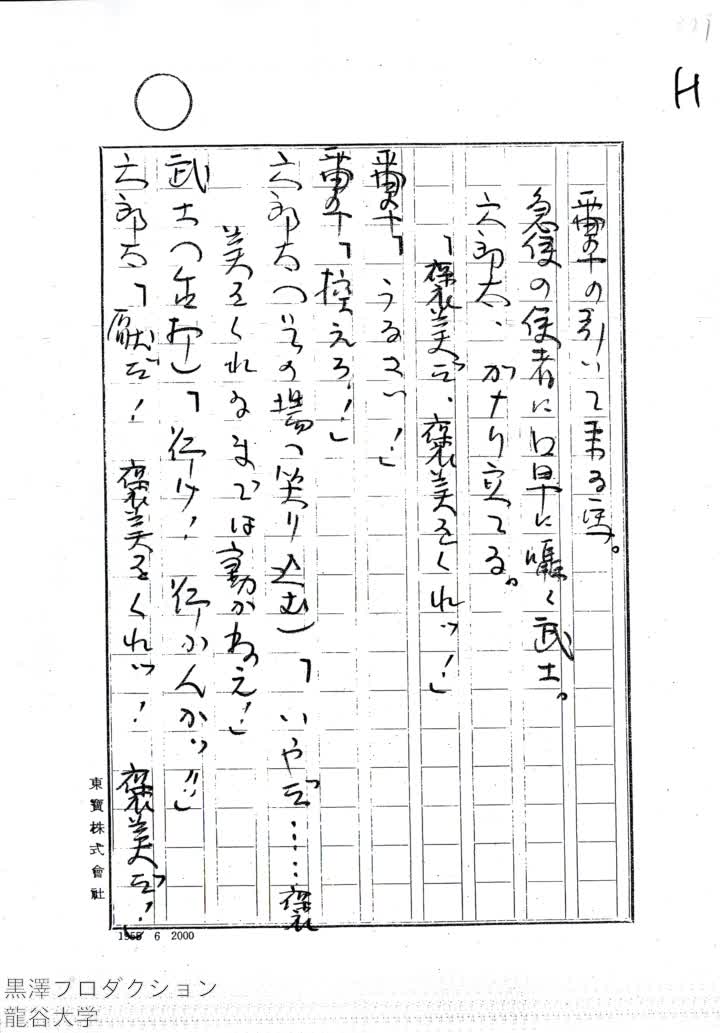 H
番卒の引いて来る馬。
急使の使者に口早に囁く武士。
六郎太、がなり立てる。
「褒美だ、褒美をくれッ！」
番卒「うるさい！」
番卒「控えろ！」
六郎太（その場へ坐り込む）「いやだ……褒
美をくれるまでは動かねえ！」
武士（
」「行け！　行かんかッ!!」
六郎太「厭だ！　褒美をくれッ！　褒美だ！」
東寳株式會社
6 2000
黒澤プロダクション
龍谷大学